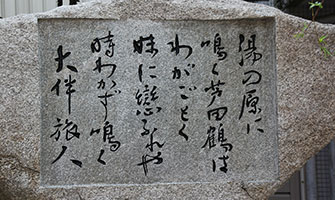 湯の原に
鳴く芦田鶴は
わがごとく
妹に戀ふれや
時わかず鳴く
大伴旅人